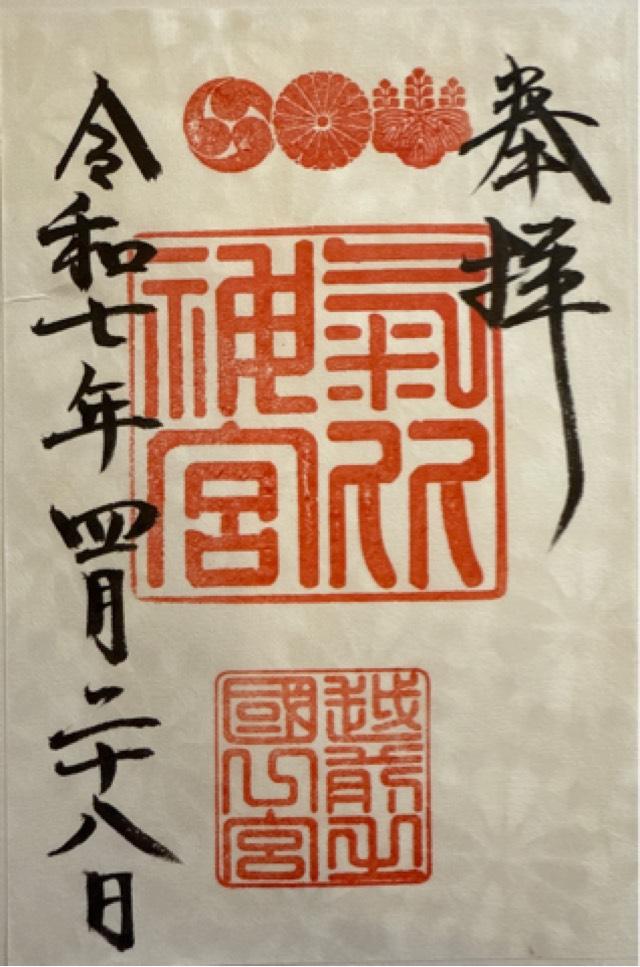 奉拝
氣比
神宮
越前之
國宮
令和七年四月二十八日